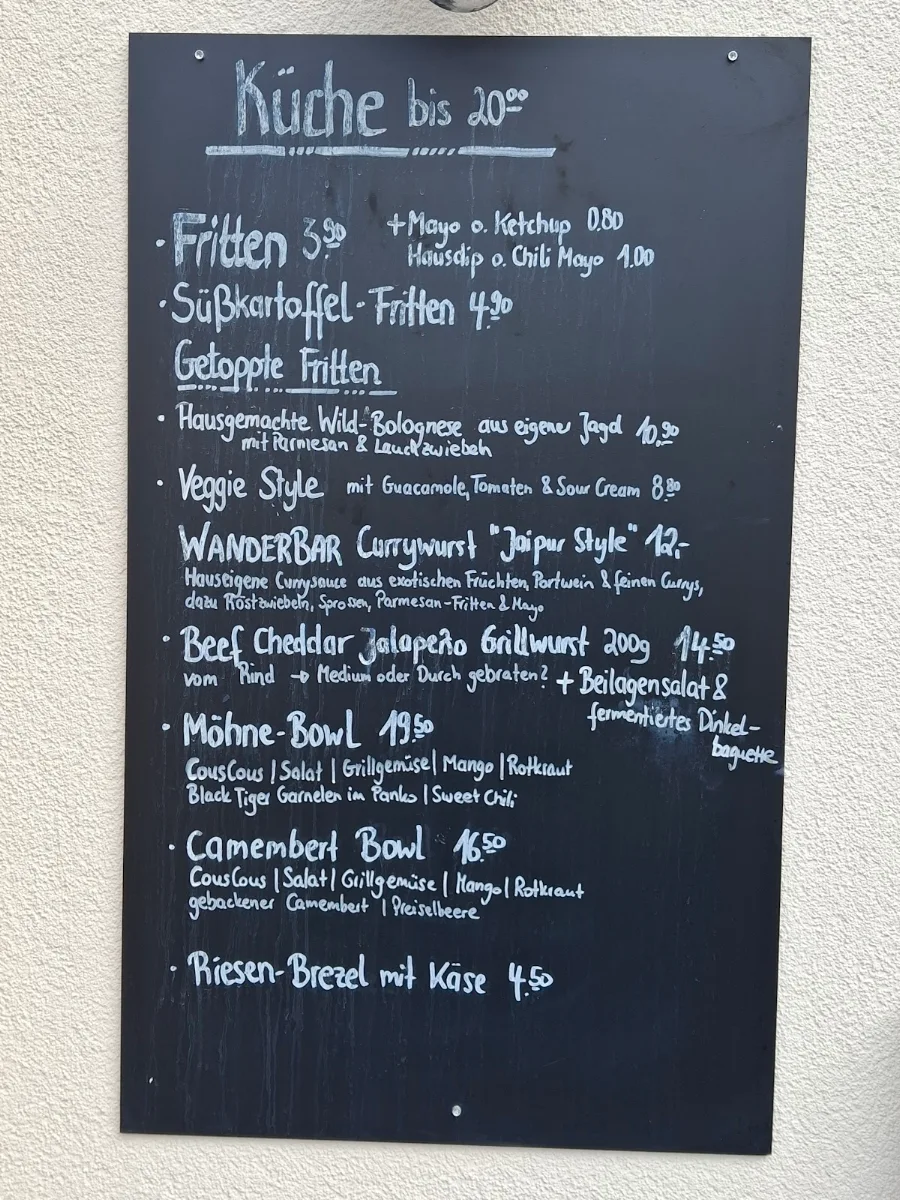 Küche bis 20⁰⁰
· Fritten 3.90 + Mayo o. Ketchup 0.80
Hausdip o. Chili Mayo 1.00
· Süßkartoffel-Fritten 4.90
Getoppte Fritten
· Hausgemachte Wild-Bolognese aus eigener Jagd 10.90
mit Parmesan & Lauchzwiebeln
· Veggie Style mit Guacamole, Tomaten & Sour Cream 8.80
WANDERBAR Currywurst "Jaipur Style" 12,-
Hauseigene Currysauce aus exotischen Früchten, Portwein & feinen Currys,
dazu Röstzwiebeln, Sprossen, Parmesan-Fritten & Mayo
· Beef Cheddar Jalapeño Grillwurst 200g 14.50
vom Rind → Medium oder Durch gebraten? + Beilagensalat &
fermentiertes Dinkel-
baguette
· Möhne-Bowl 19.50
CousCous | Salat | Grillgemüse | Mango | Rotkraut
Black Tiger Garnelen im Panko | Sweet Chili
· Camembert Bowl 16.50
CousCous | Salat | Grillgemüse | Mango | Rotkraut
gebackener Camembert | Preiselbeere
· Riesen-Brezel mit Käse 4.50